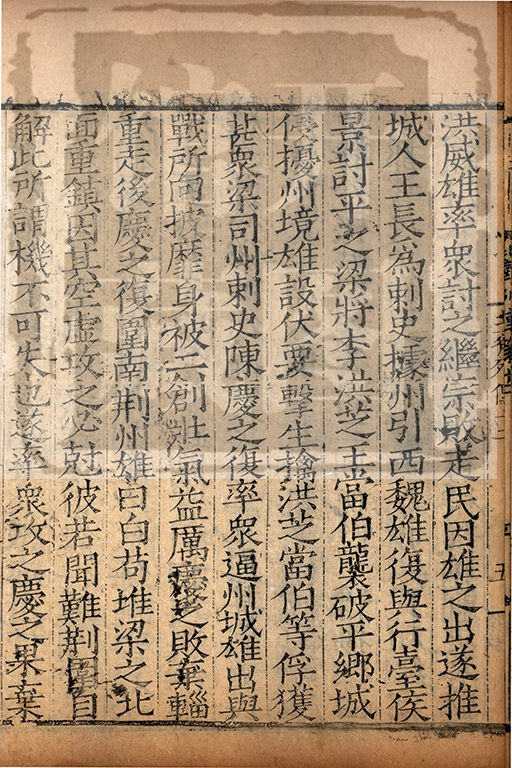 洪威雄率衆討之繼宗敗走民因雄之出遂推
城人王長為刺史據州引西魏雄復與行臺侯
景討平之梁將李洪芝王當伯襲破平鄉城
侵擾州境雄設伏要擊生擒洪芝當伯等俘獲
甚衆梁司州刺史陳慶之復率衆逼州城雄出與
戰所向披靡身被二創壯氣益厲慶之敗棄輜
重走後慶之復圍南荆州雄曰白苟堆梁之北
面重鎮因其空虛攻之必尅彼若聞難荆圍自
解此所謂機不可失也遂率衆攻之慶之果棄